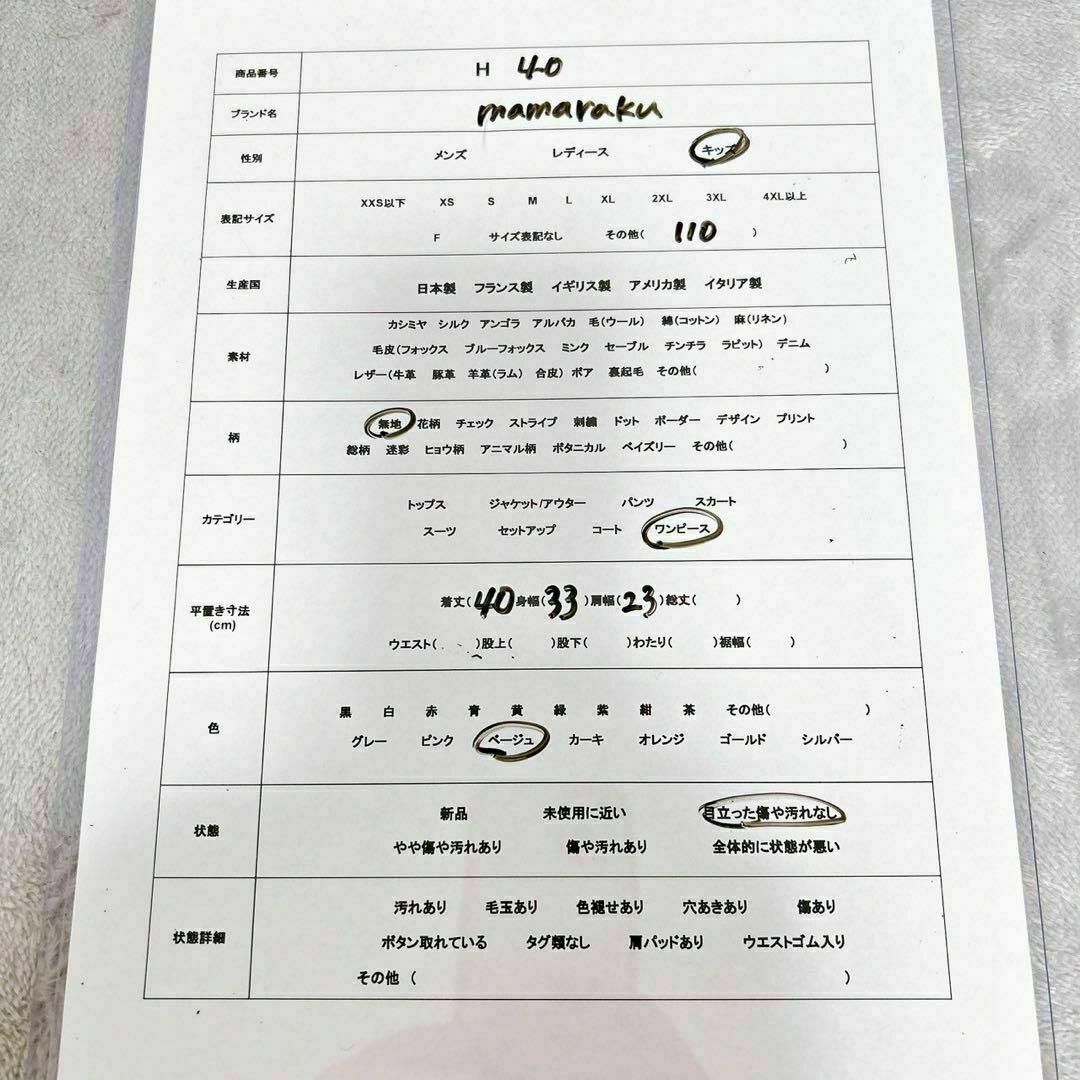 商品番号 H 40
ブランド名 mamaraku
性別 メンズ レディース キッズ
表記サイズ XXS以下 XS S M L XL 2XL 3XL 4XL以上
F サイズ表記なし その他( 110 )
生産国 日本製 フランス製 イギリス製 アメリカ製 イタリア製
素材 カシミヤ シルク アンゴラ アルパカ 毛(ウール) 綿(コットン) 麻(リネン)
毛皮(フォックス ブルーフォックス ミンク セーブル チンチラ ラビット) デニム
レザー(牛革 豚革 羊革(ラム) 合皮) ボア 裏起毛 その他( )
柄 無地 花柄 チェック ストライプ 刺繍 ドット ボーダー デザイン プリント
総柄 迷彩 ヒョウ柄 アニマル柄 ボタニカル ペイズリー その他( )
カテゴリー トップス ジャケット/アウター パンツ スカート
スーツ セットアップ コート ワンピース
平置き寸法 (cm) 着丈(40 身幅(33 )肩幅(23 )総丈( )
ウエスト( )股上( )股下( )わたり( )裾幅( )
色 黒 白 赤 青 黄 緑 紫 紺 茶 その他( )
グレー ピンク ベージュ カーキ オレンジ ゴールド シルバー
状態 新品 未使用に近い 目立った傷や汚れなし
やや傷や汚れあり 傷や汚れあり 全体的に状態が悪い
状態詳細 汚れあり 毛玉あり 色褪せあり 穴あきあり 傷あり
ボタン取れている タグ類なし 肩パッドあり ウエストゴム入り
その他 ( )